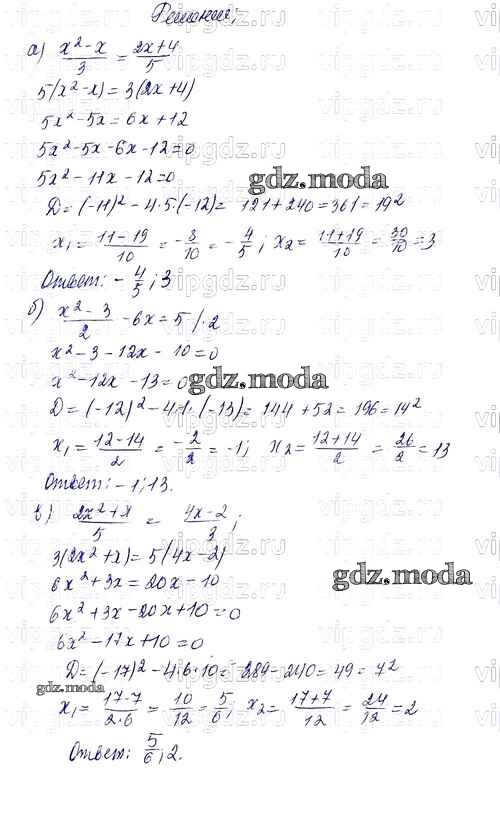 Решение;
а) (x²-x)/3 = (2x+4)/5
5(x²-x)=3(2x+4)
5x²-5x=6x+12
5x²-5x-6x-12=0
5x²-11x-12=0
gdz.moda
D=(-11)²-4·5(-12)= 121+240=361=19²
x₁=(11-19)/10=-8/10=-4/5; x₂=(11+19)/10=30/10=3
Ответ: -4/5; 3
б) (x²-3)/2 -6x=5 /·2
x²-3-12x-10=0
x²-12x-13=0
gdz.moda
D=(-12)²-4·1·(-13)=144+52=196=14²
x₁=(12-14)/2=-2/2=-1; x₂=(12+14)/2=26/2=13
Ответ: -1; 13.
в) (2x²+x)/5 = (4x-2)/3;
3(2x²+x)=5(4x-2)
6x²+3x=20x-10
gdz.moda
6x²+3x-20x+10=0
6x²-17x+10=0
D=(-17)²-4·6·10=289-240=49=7²
gdz.moda
x₁=(17-7)/2·6=10/12=5/6; x₂=(17+7)/12=24/12=2
Ответ: 5/6; 2.
vipgdz.ru